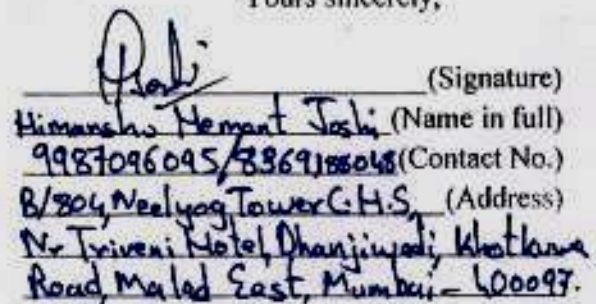 Yours sincerely,
(Signature)
Himanshu Hemant Joshi (Name in full)
9987096095/8369188048 (Contact No.)
B/804, Neelyog Tower C.H.S, (Address)
Nr Triveni Hotel, Dhanjiwadi, Khotkuwa
Road, Malad East, Mumbai - 400097.